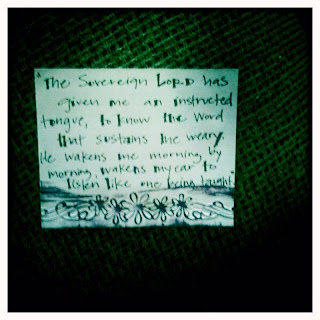 "The Sovereign LORD has
given me an instructed
tongue, to know the word
that sustains the weary.
He wakens me morning by
morning, wakens my ear to
listen like one being taught."